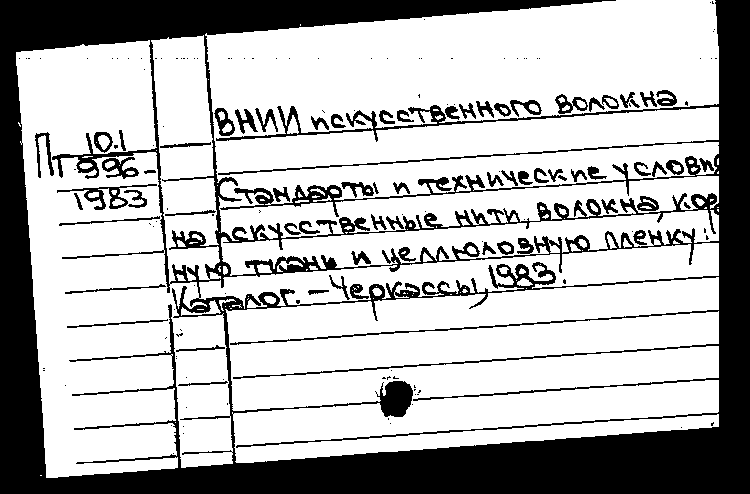 ВНИИ искусственного волокна.
Пт 10.1
996-
1983
Стандарты и технические условия
на искусственные нити, волокна, кор
ную ткани и целлюлозную пленку:
Каталог. – Черкассы, 1983.